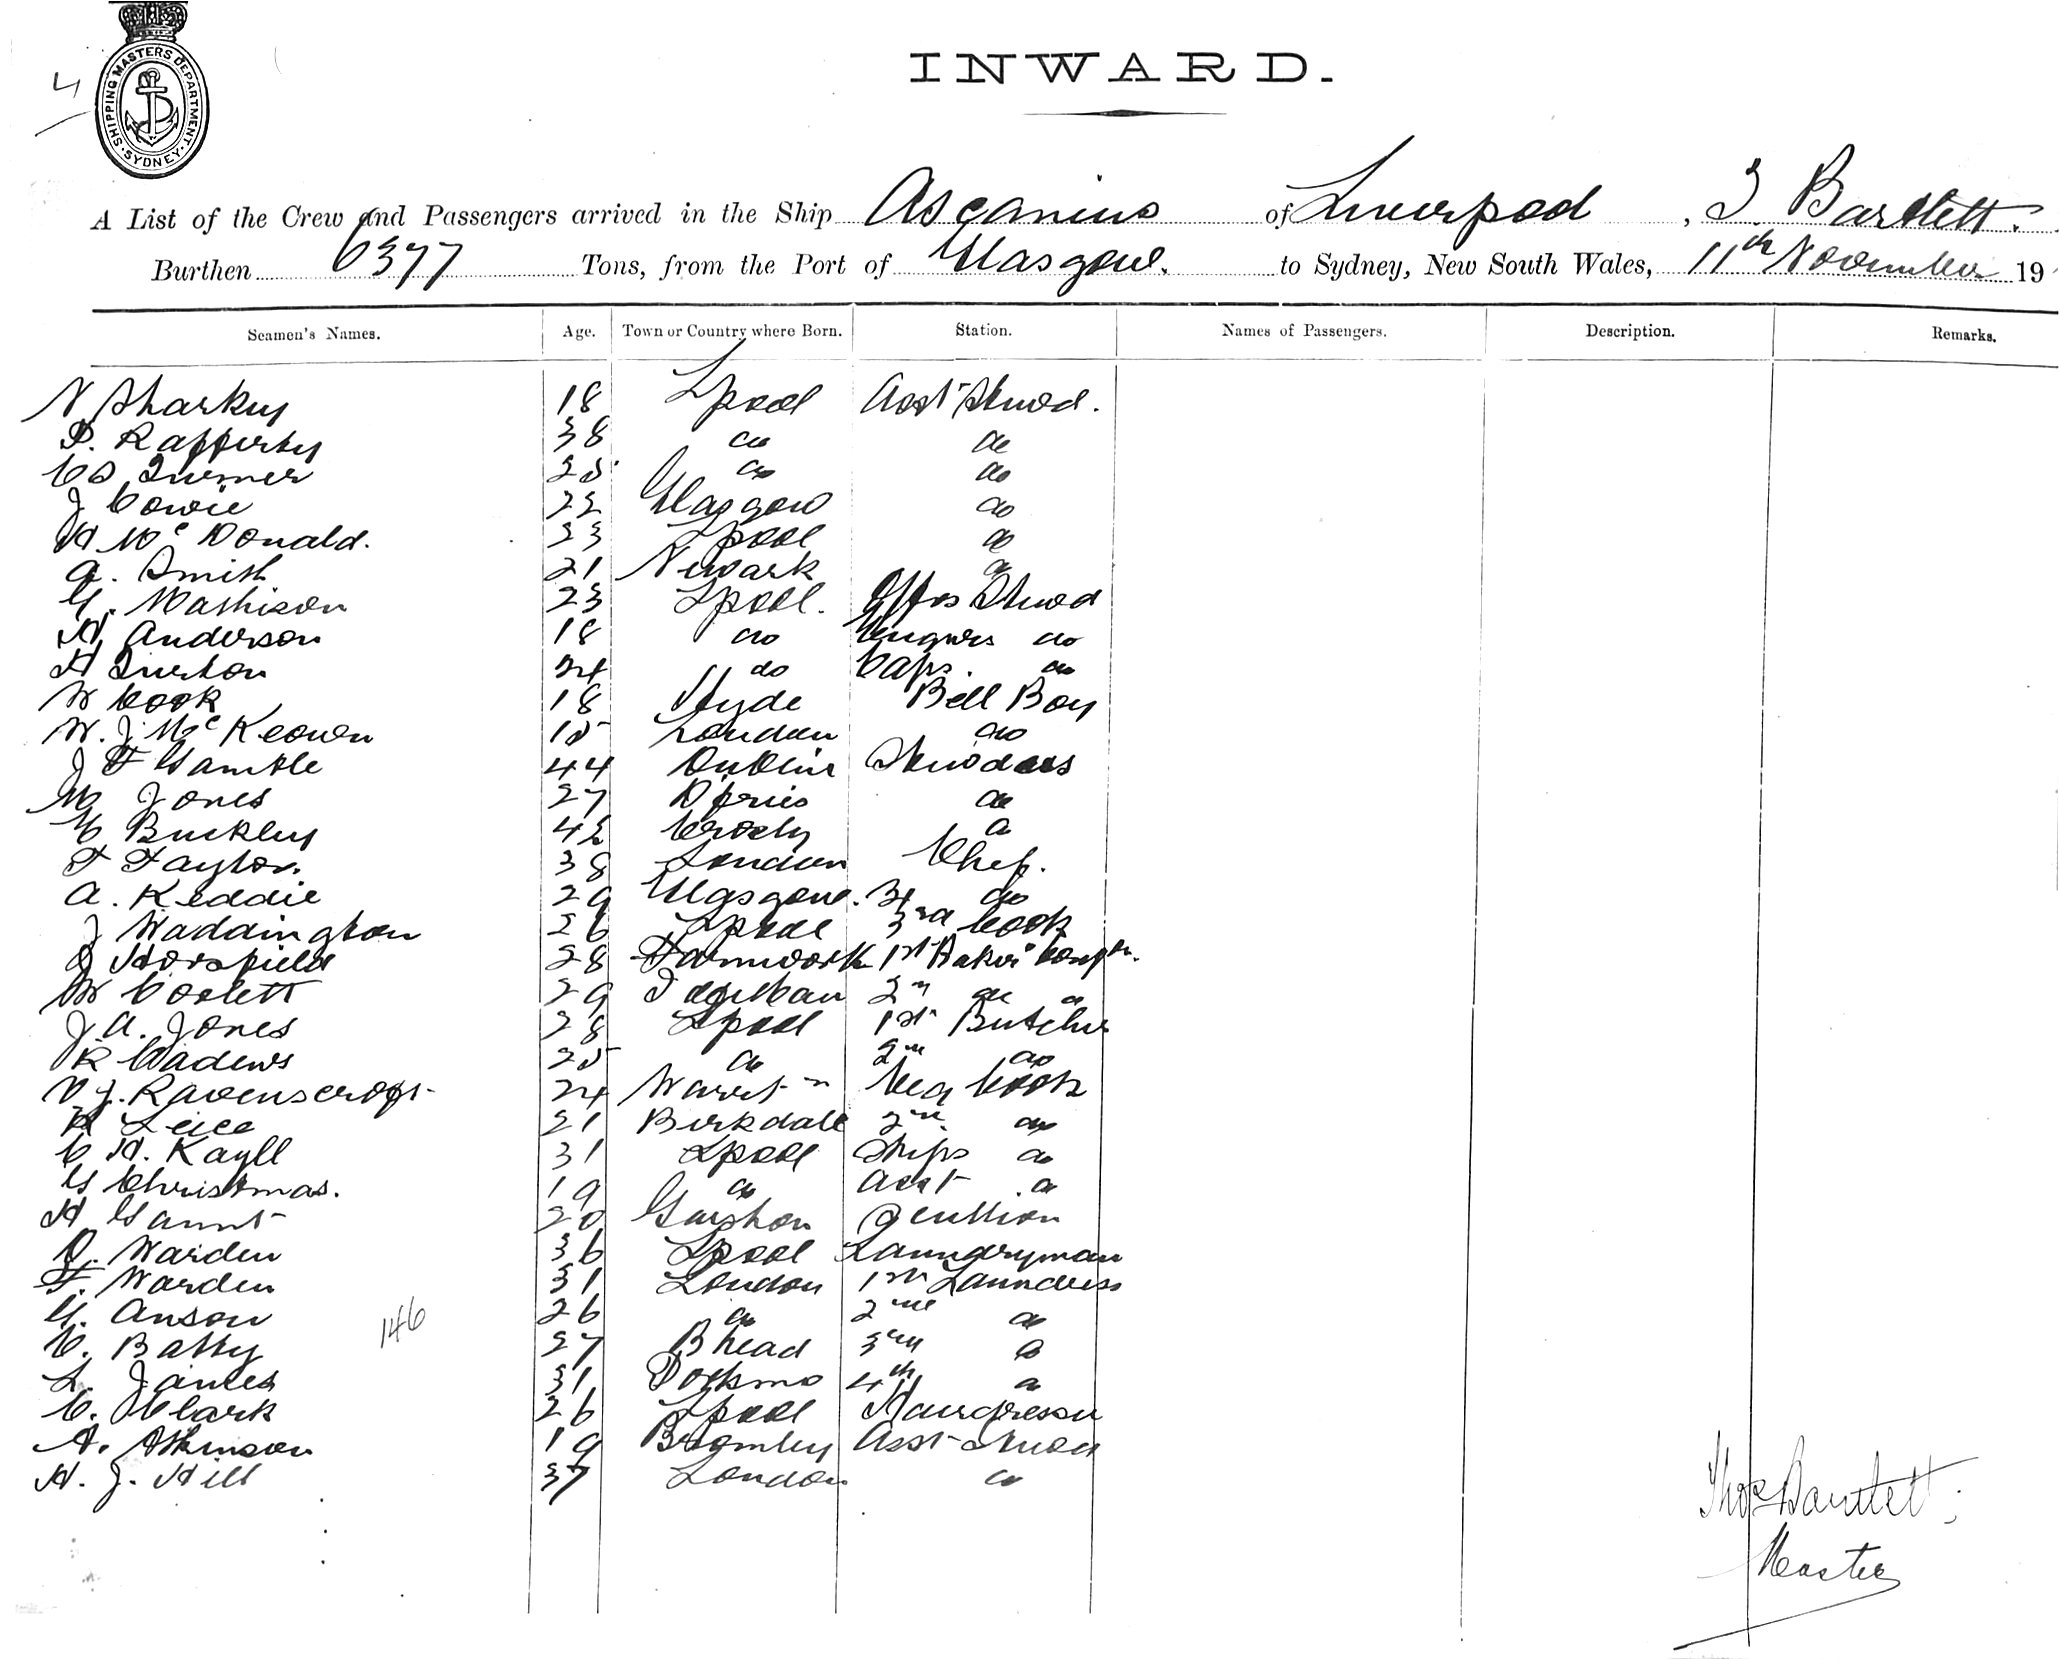 4
SHIPPING MASTERS DEPARTMENT. SYDNEY.
INWARD.
A List of the Crew and Passengers arrived in the Ship Ascanius of Liverpool, T. Bartlett.
Burthen 6377 Tons, from the Port of Glasgow. to Sydney, New South Wales, 11th November 19
Seamen's Names. Age. Town or Country where Born. Station. Names of Passengers. Description. Remarks.
N Sharkey 18 Lpool Asst Stwd.
P. Rafferty 38 do do
Turner 25 do do
J Cowie 22 Glasgow do
H McDonald. 23 Lpool do
A. Smith 21 Newark do
G. Mathison 23 Lpool. Offrs Stwd
H. Anderson 18 do Engnrs do
H Turton 24 do Caps. do
W Cook 18 Hyde Bell Boy
W. J McKeown 15 London do
J F Gamble 44 Dublin
M Jones 27 do
C Buckley 42 Crosby do
F Taylor. 38 London Chef.
A. Keddie 29 Glasgow. do
J Waddington 26 Lpool 3rd Cook
J Horsfield 28 Farnworth 1st Baker
W Corlett 29 2nd do do
J A. Jones 28 Lpool 1st Butcher
R 25 do 2nd do
J. Ravenscroft 24 Veg Cook
R Leice 21 Birkdale 2nd do
C H. Kayll 31 Lpool Ships do
G Christmas. 19 do Asst do
H Gaunt 20 Garston Scullion
D. Warden 36 Lpool Laundryman
F. Warden 31 London 1st Laundress
G. Anson 26 do 2nd do
146
C. Batty 27 Bhead 3rd do
L. James 31 4th do
C. Clark 26 Lpool
A. Atkinson 19 Bromley Asst Stwd
H. J. Hill 37 London do
Thos Bartlett
Master